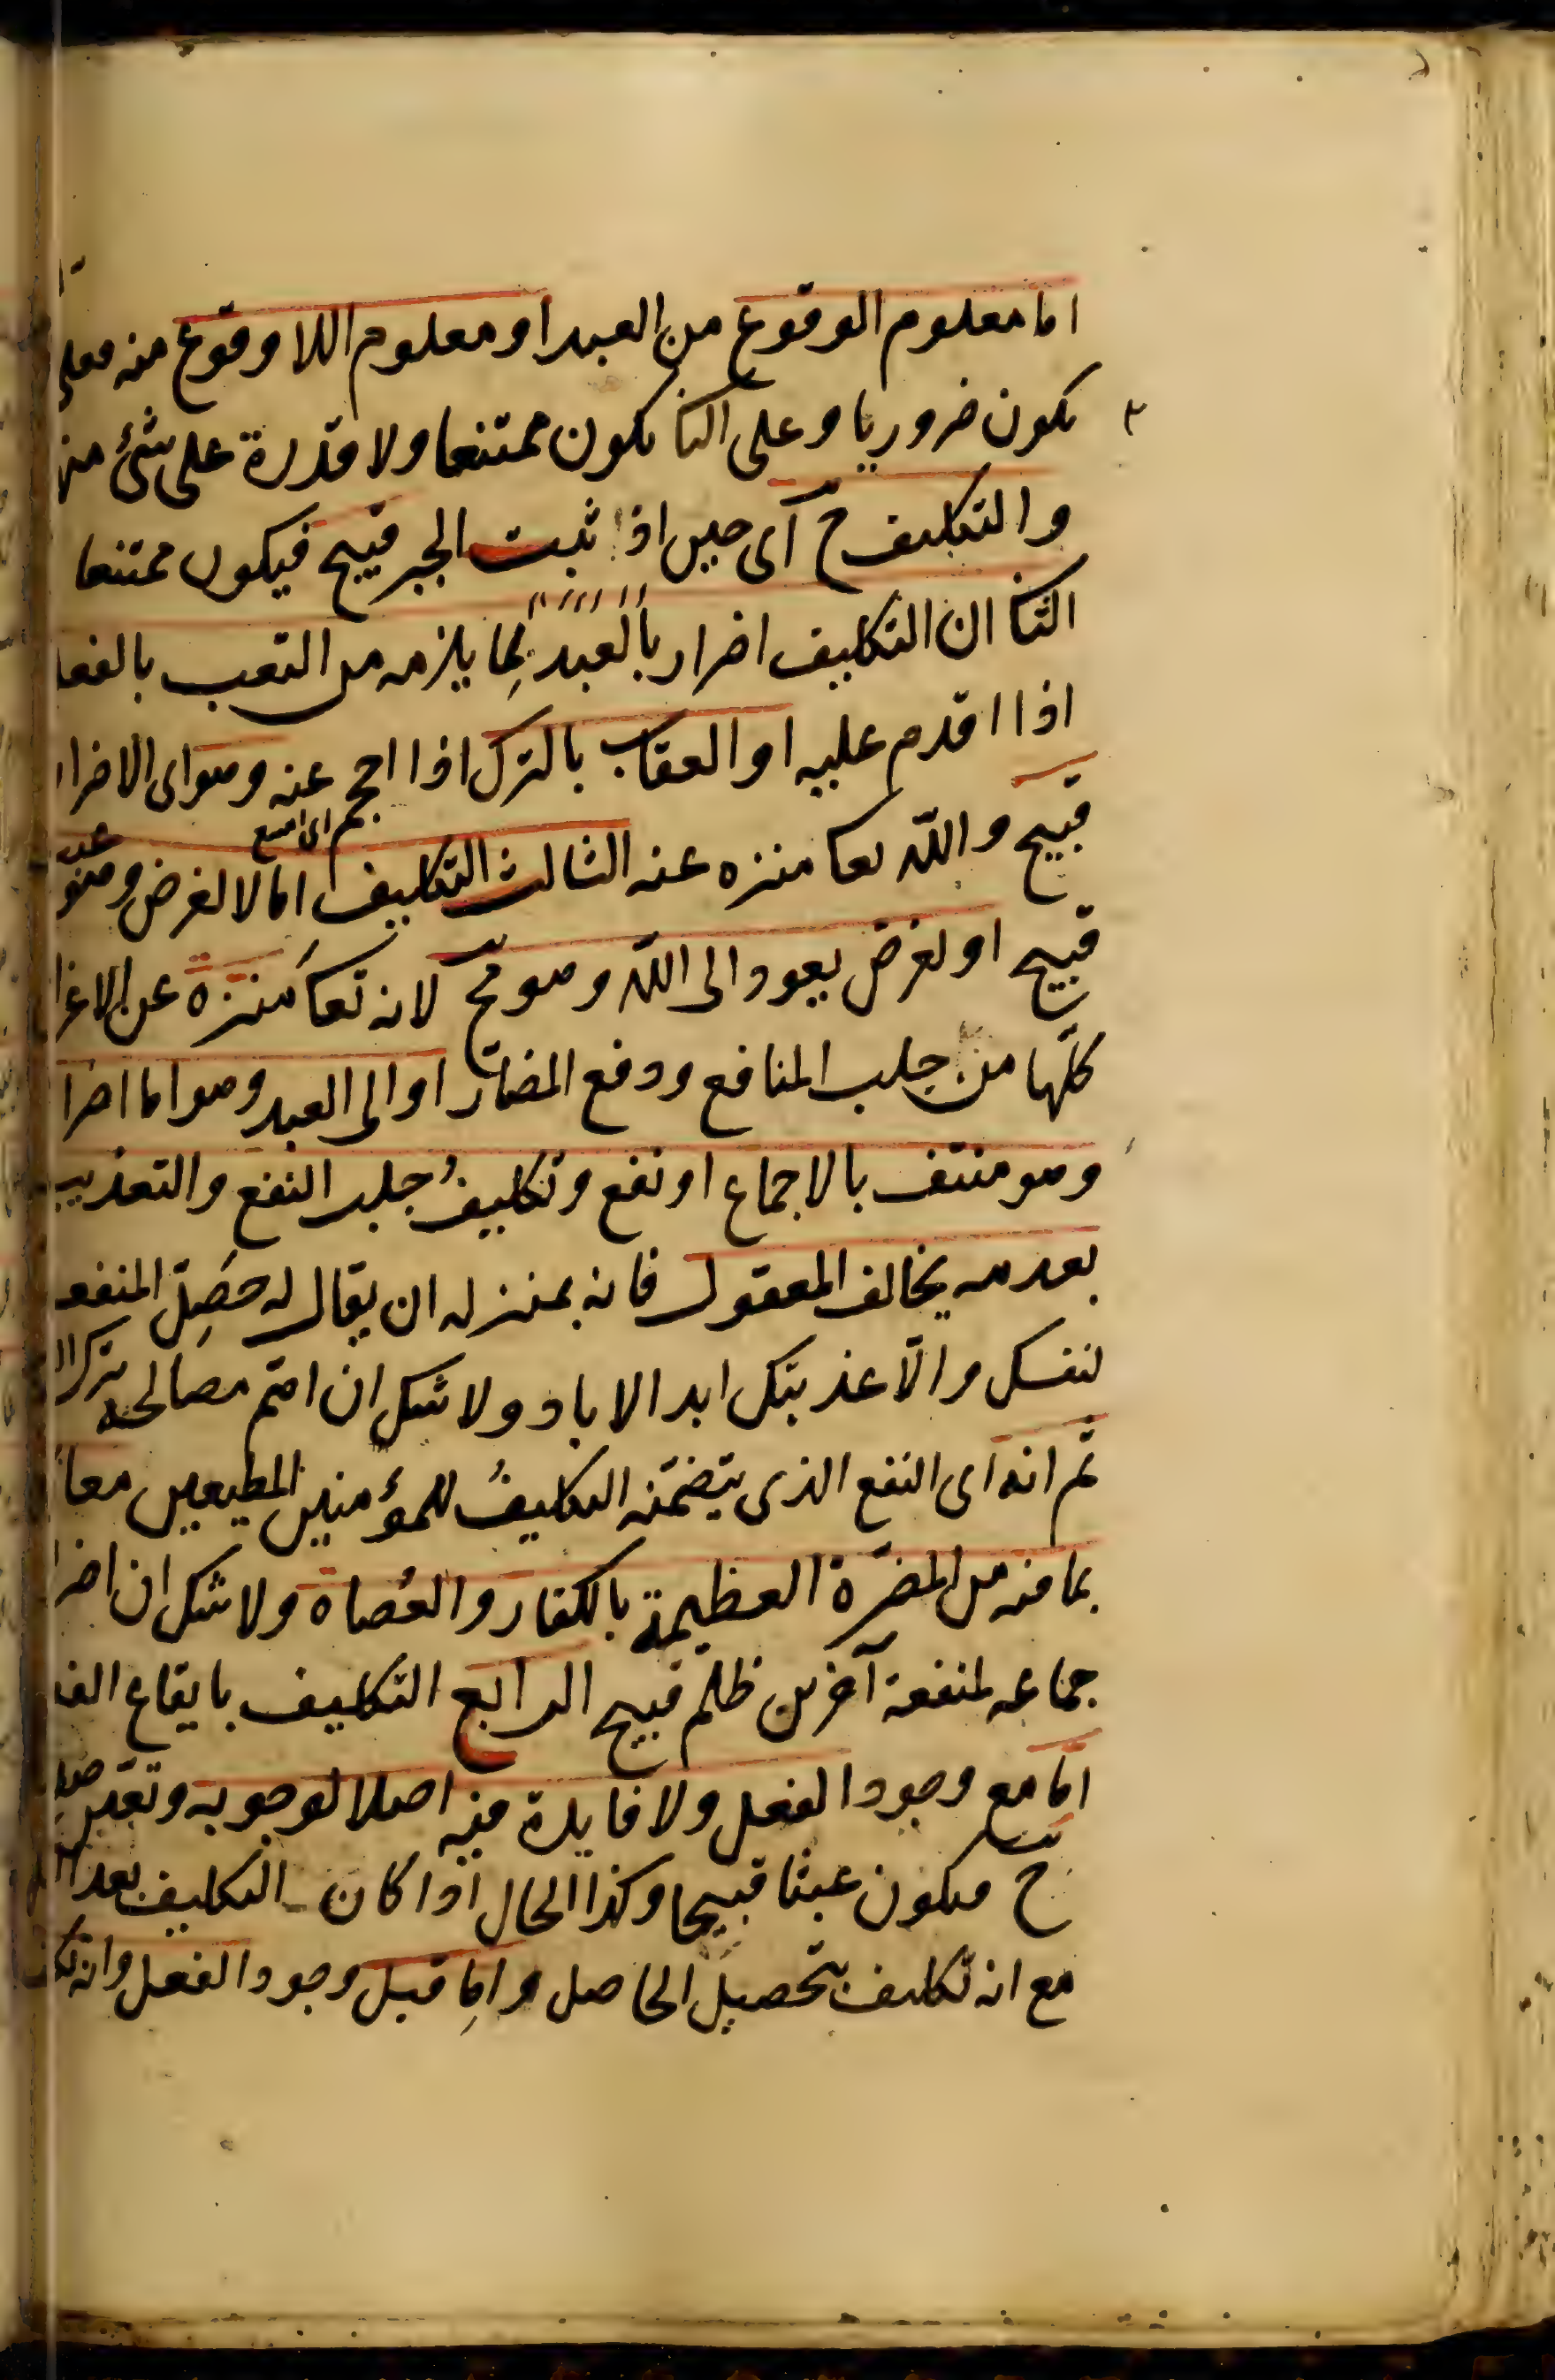 اما معلوم الوقوع من العبد او معلوم اللاوقوع منه فعلى
يكون ضروريا و على الثا يكون ممتنعا ولا قدرة على شئ منها
والتكليف ح آى حين اذا ثبت الجبر قبيح فيكون ممتنعا
الثا ان التكليف اضرار بالعبد لما يلزمه من التعب بالفعل
اذا اقدم عليه او العقاب بالترك اذا احجم عنه وهو اى الاضرار
اى امتنع
قبيح والله تعا منزه عنه الثالث التكليف اما لا لغرض وهو
عبث
قبيح او لغرض يعود الى الله وهو مح لانه تعا منزه عن الاغرا
كلّها من جلب المنافع ودفع المضارّ او الى العبد وهو اما اضرا
وهو منتف بالاجماع او نفع وتكليفُ جلب النفع والتعذيب
بعدمه يخالف المعقول فانه بمنزله ان يقال له حَصِّل المنفعة
لنفسك والّا عذبتك ابد الاباد ولا شك ان اهم مصالحه ترك
ثم انه اى النفع الذى يتضمّنه التكليفُ للمؤمنين المطيعين معا
بما فيه من المضرّة العظيمة بالكفار والعُصاة ولا شك ان اضرا
جماعه لمنفعة آخرين ظلم قبيح الرابع التكليف بايقاع الفعل
اما مع وجود الفعل ولا فايدة فيه اصلا لوجوبه وتعيّن
ح فيكون عبثا قبيحا وكذا الحال اذا كان التكليف بعد
مع انه تكليف بتحصيل الحاصل واما قبل وجود الفعل وانه